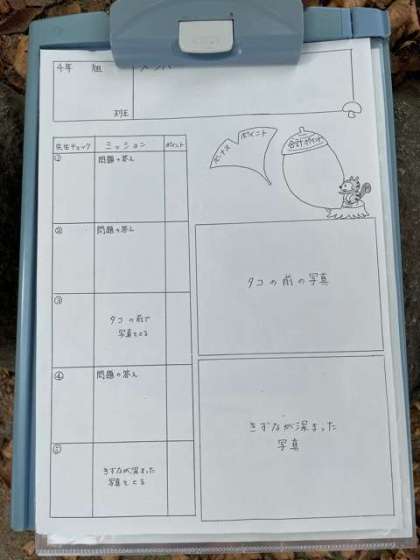 4年 組
メンバー
班
先生チェック ミッション ポイント
① 問題の答え
② 問題の答え
③
タコの前で
写真をとる
④ 問題の答え
⑤
きずなが深まった
写真をとる
ボーナス ポイント
合計ポイント
タコの前の写真
きずなが深まった
写真